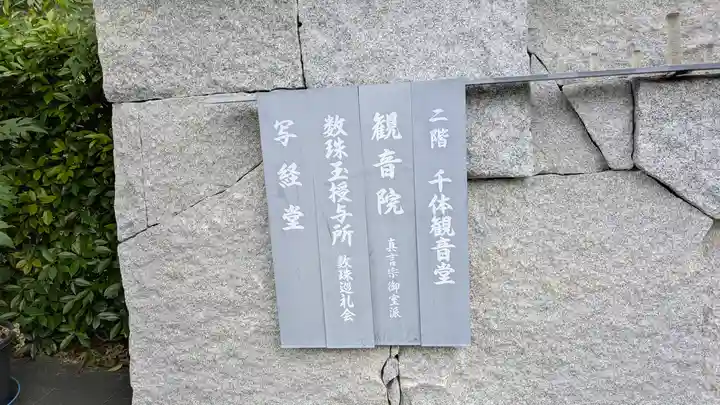 二階 千体観音堂
観音院 真言宗御室派
数珠玉授与所 数珠巡礼会
写経堂